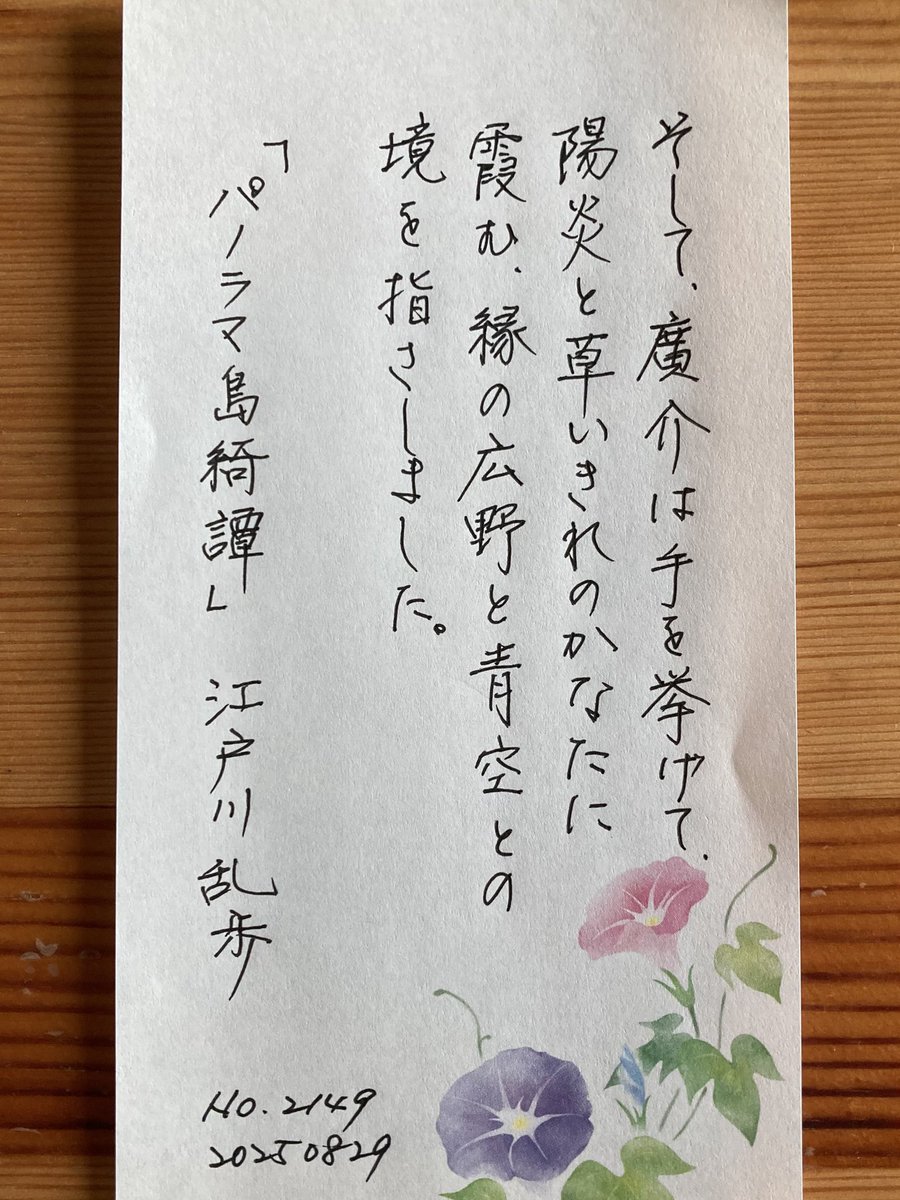 そして、廣介は手を挙げて、
陽炎と草いきれのかなたに
霞む、縁の広野と青空との
境を指さしました。
「パノラマ島綺譚」 江戸川乱歩
NO.2149
20250829